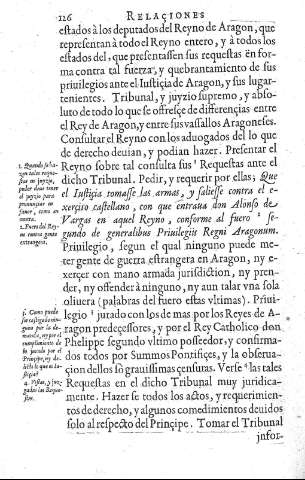 126 RELACIONES
estados à los deputados del Reyno de Aragon, que
representan à todo el Reyno entero, y à todos los
estados del, que presentassen sus requestas en for-
ma contra tal fuerza, y quebrantamiento de sus
priuilegios ante el Iustiçia de Aragon, y sus lugar-
tenientes. Tribunal, y juyzio supremo, y abso-
luto de todo lo que se offresçe de differençias entre
el Rey de Aragon, y entre sus vassallos Aragoneses.
Consultar el Reyno con los aduogados del lo que
de derecho deuian, y podian hazer. Presentar el
Reyno sobre tal consulta sus Requestas ante el
dicho Tribunal. Pedir, y requerir por ellas; Que
el Iustiçia tomasse las armas, y saliesse contra el e-
xerçito castellano, con que entraua don Alonso de
Vargas en aquel Reyno, conforme al fuero 2 se-
gundo de generalibus Priuilegiis Regni Aragonum.
Priuilegio, segun el qual ninguno puede me-
ter gente de guerra estrangera en Aragon, ny e-
xerçer con mano armada jurisdiction, ny pren-
der, ny offender à ninguno, ny aun talar vna sola
oliuera (palabras del fuero estas vltimas). Priui-
legio 3 jurado con los de mas por los Reyes de A-
ragon predeçessores, y por el Rey Catholico don
Phelippe segundo vltimo posseedor, y confirma-
dos todos por Summos Pontifiçes, y la obserua-
çion dellos sò grauissimas çensuras. Verse 4 las tales
Requestas en el dicho Tribunal muy juridica-
mente. Hazer se todos los actos, y requerimien-
tos de derecho, y algunos comedimientos deuidos
solo al respecto del Prinçipe. Tomar el Tribunal
jnfor-
2. Fuero del Rey-
estrangera.
3. Como puede
4. Vistas, y juz-